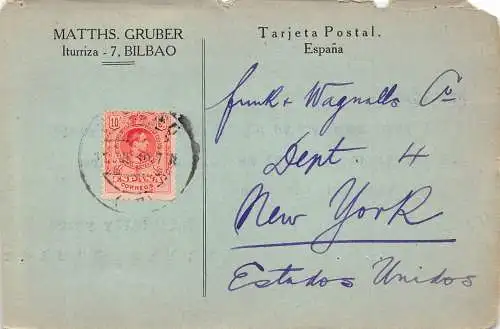 MATTHS. GRUBER
Iturriza - 7, BILBAO
Tarjeta Postal.
España
10
CORREOS
Funk & Wagnalls Co
Dept 4
New York
Estados Unidos